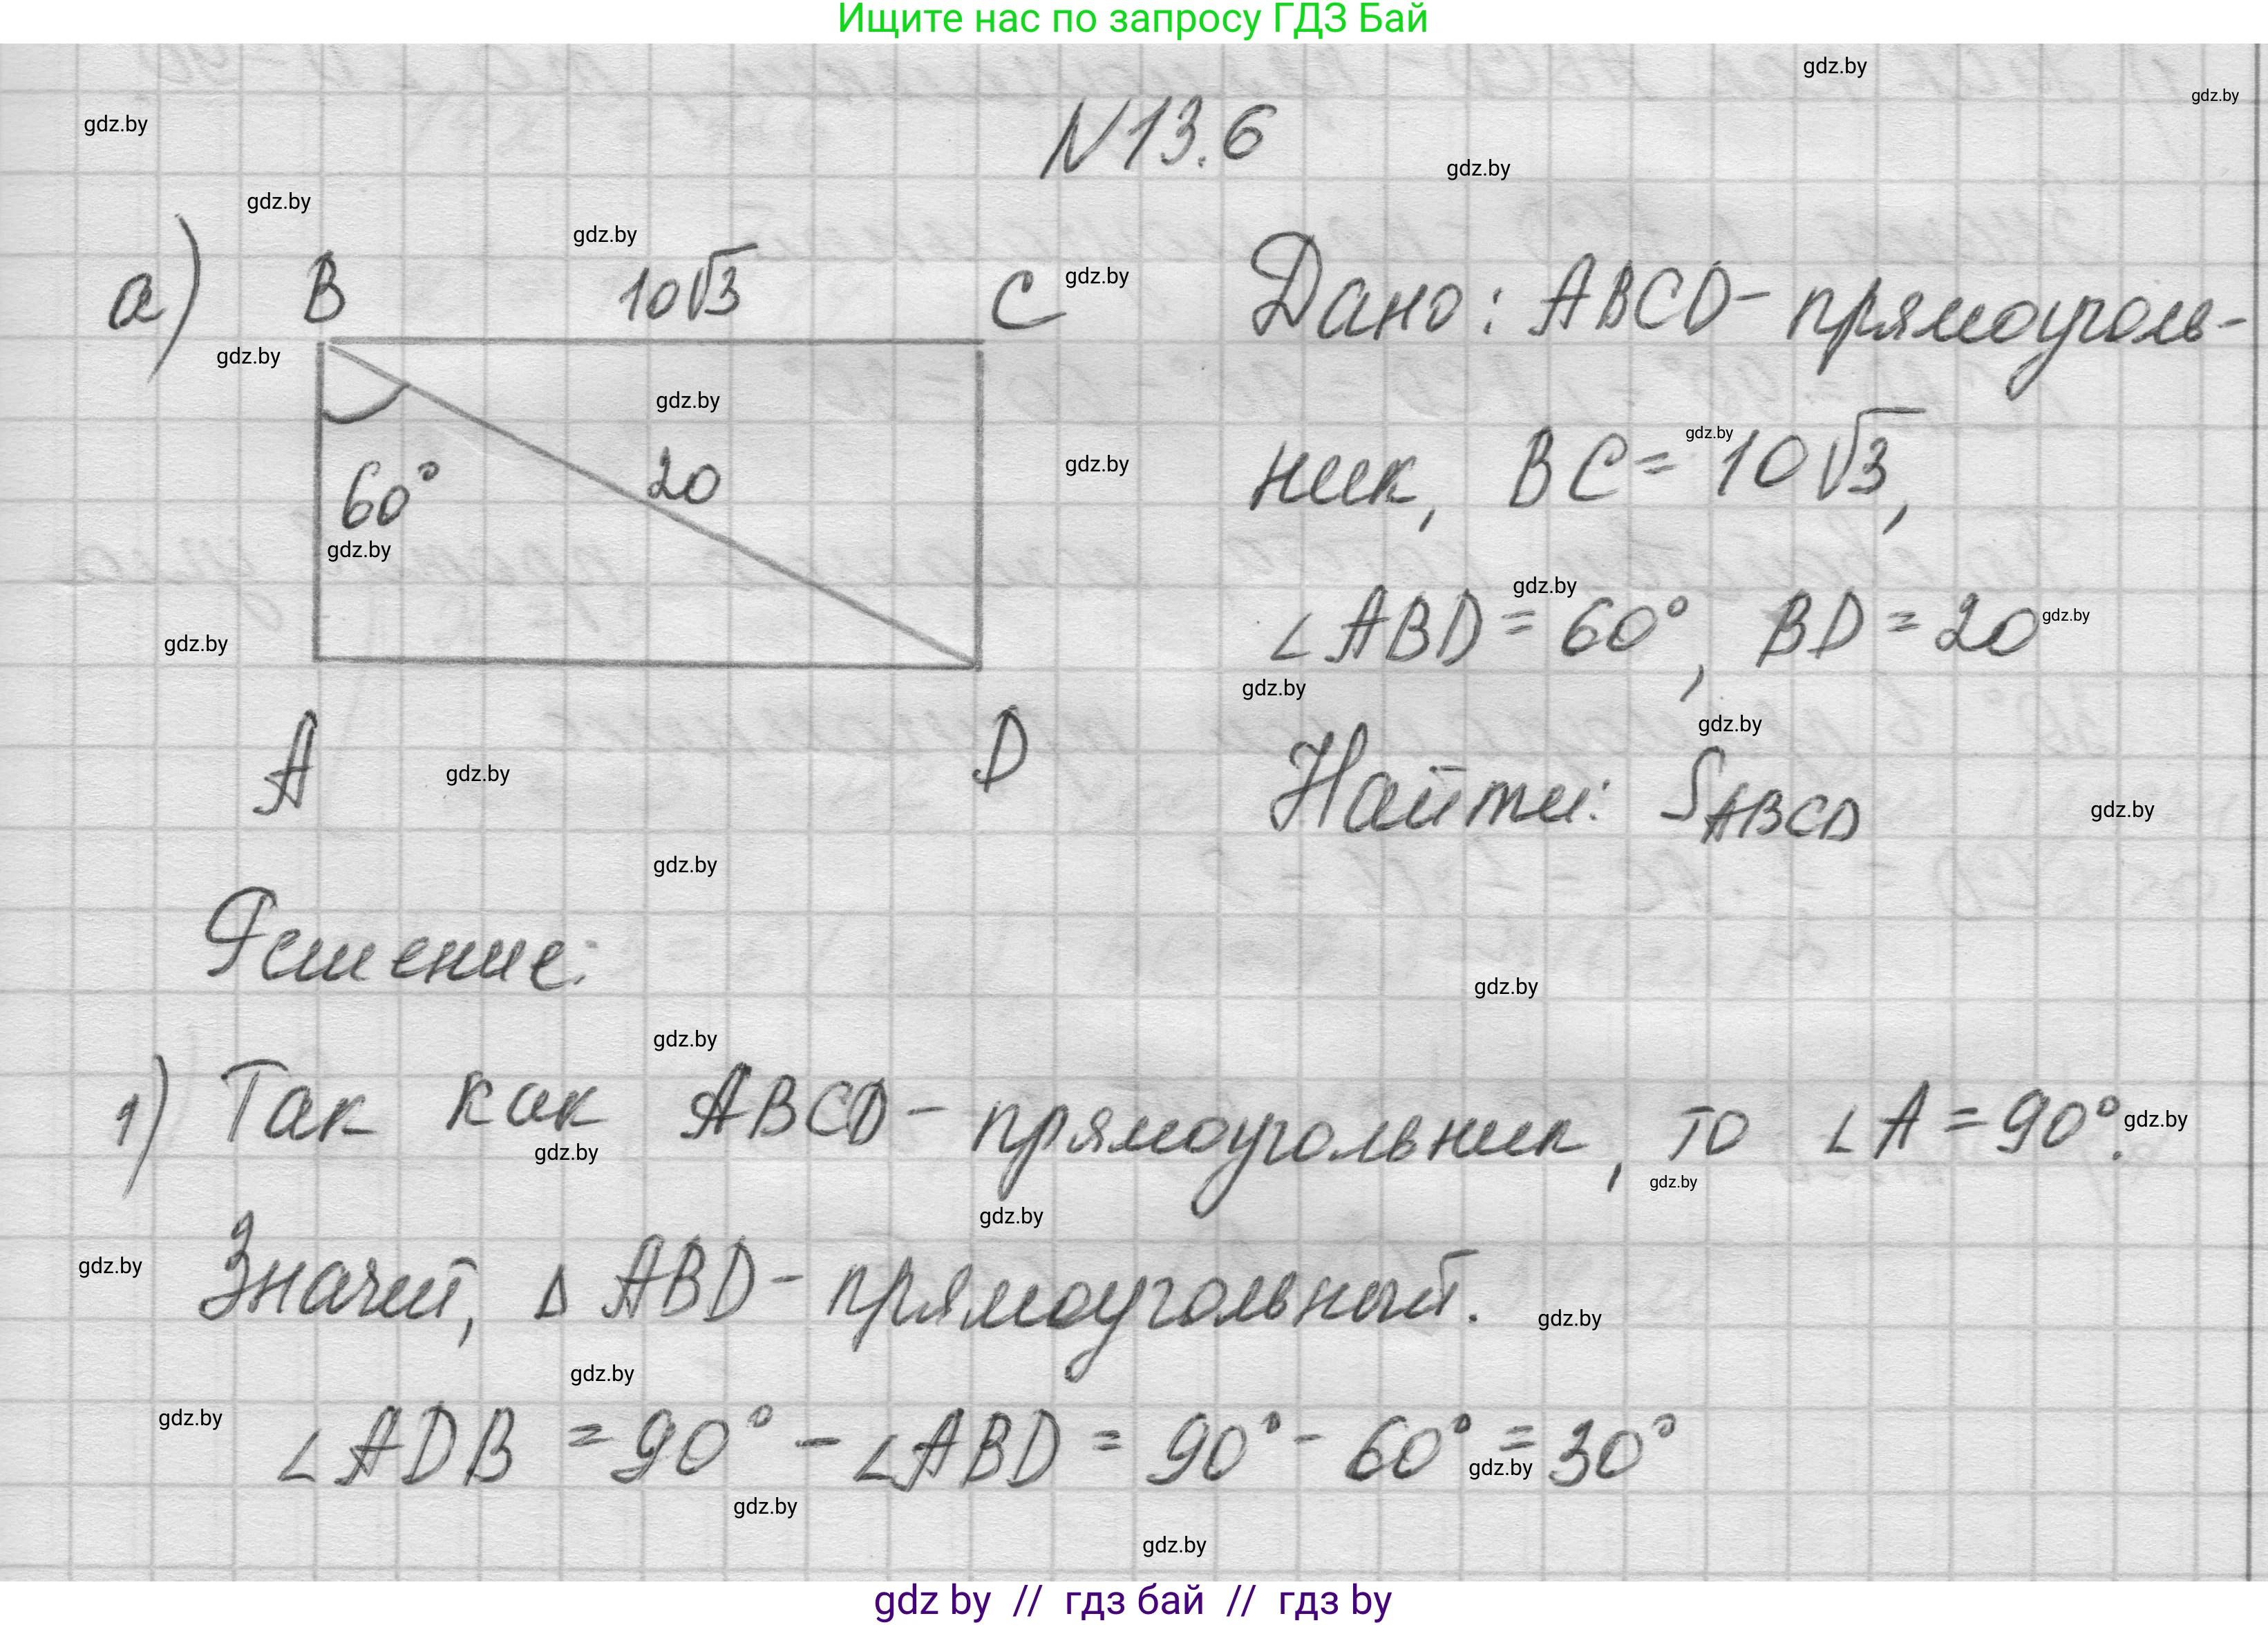 Ищите нас по запросу ГДЗ Бай
gdz.by
gdz.by
gdz.by
N13.6
gdz.by
gdz.by
gdz.by
а) B 10√3 C
gdz.by
Дано: ABCD - прямоуголь-
gdz.by
gdz.by
ник, BC = 10√3,
gdz.by
gdz.by
60° 20
gdz.by
gdz.by
∠ABD = 60°, BD = 20
gdz.by
gdz.by
gdz.by
gdz.by
A D
gdz.by
Найти: S ABCD
gdz.by
gdz.by
Решение:
gdz.by
gdz.by
1) Так как ABCD - прямоугольник, то ∠A = 90°.
gdz.by
gdz.by
gdz.by
gdz.by
gdz.by
Значит, Δ ABD - прямоугольный.
gdz.by
gdz.by
gdz.by
∠ADB = 90° - ∠ABD = 90° - 60° = 30°
gdz.by
gdz.by
gdz.by
gdz by // гдз бай // гдз by